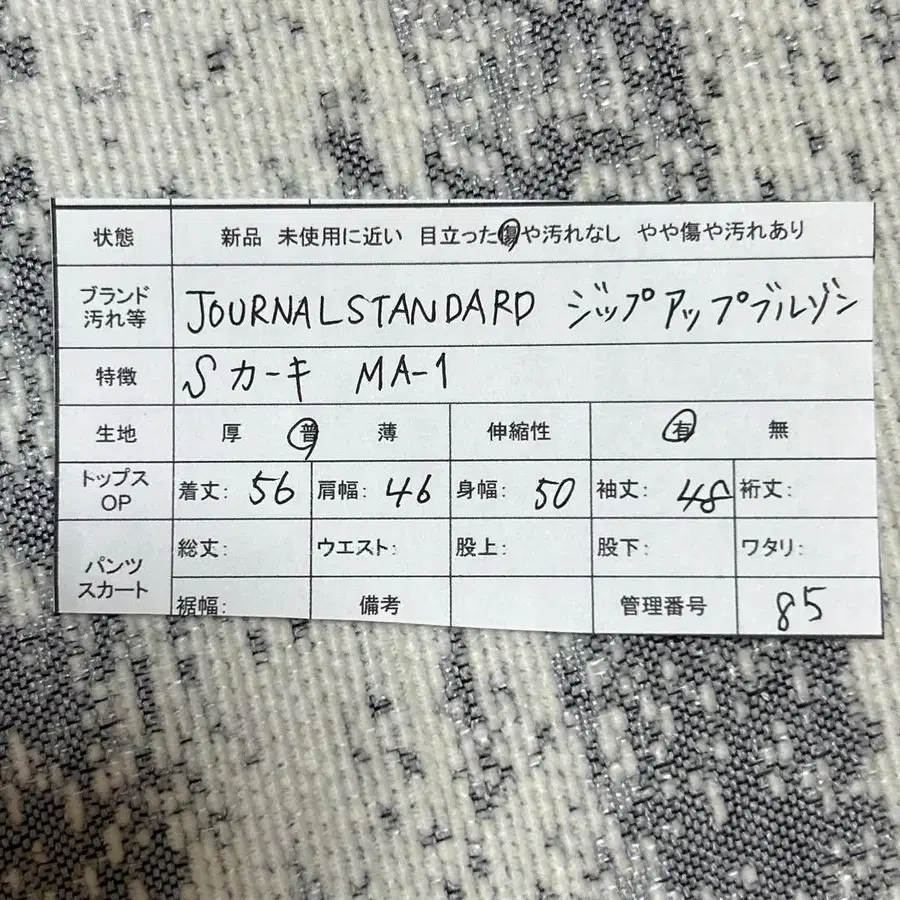 状態 新品 未使用に近い 目立った傷や汚れなし やや傷や汚れあり
ブランド
汚れ等 JOURNALSTANDARD ジップアップブルゾン
特徴 Sカーキ MA-1
生地 厚 普 薄 伸縮性 有 無
トップス
OP 着丈: 56 肩幅: 46 身幅: 50 袖丈: 48 裄丈:
パンツ
スカート 総丈: ウエスト: 股上: 股下: ワタリ:
裾幅: 備考 管理番号 85